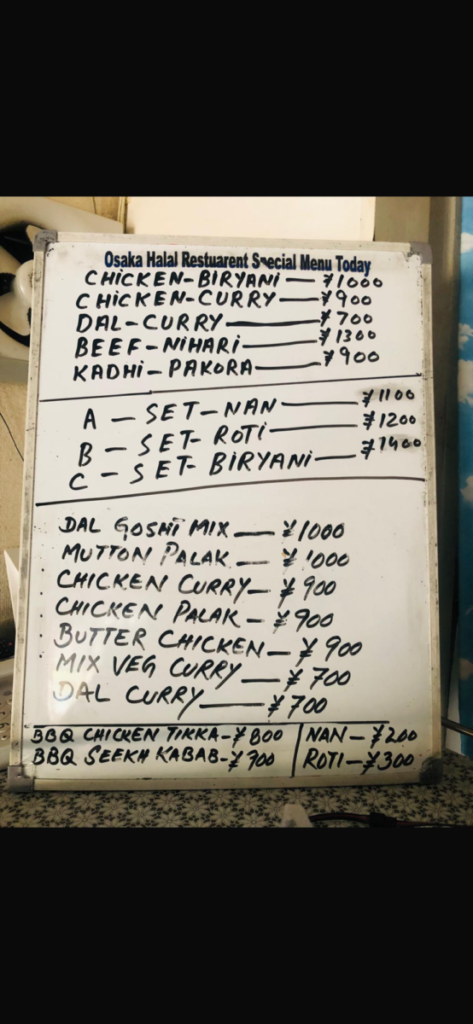 Osaka Halal Restuarent Special Menu Today
CHICKEN-BIRYANI — ¥1000
CHICKEN-CURRY — ¥900
DAL-CURRY — ¥700
BEEF-NIHARI — ¥1300
KADHI-PAKORA — ¥900
A — SET-NAN — ¥1100
B — SET-ROTI — ¥1200
C — SET-BIRYANI — ¥1400
DAL GOSHT MIX — ¥1000
MUTTON PALAK — ¥1000
CHICKEN CURRY — ¥900
CHICKEN PALAK — ¥900
BUTTER CHICKEN — ¥900
MIX VEG CURRY — ¥700
DAL CURRY — ¥700
BBQ CHICKEN TIKKA-¥800 | NAN — ¥200
BBQ SEEKH KABAB-¥700 | ROTI — ¥300